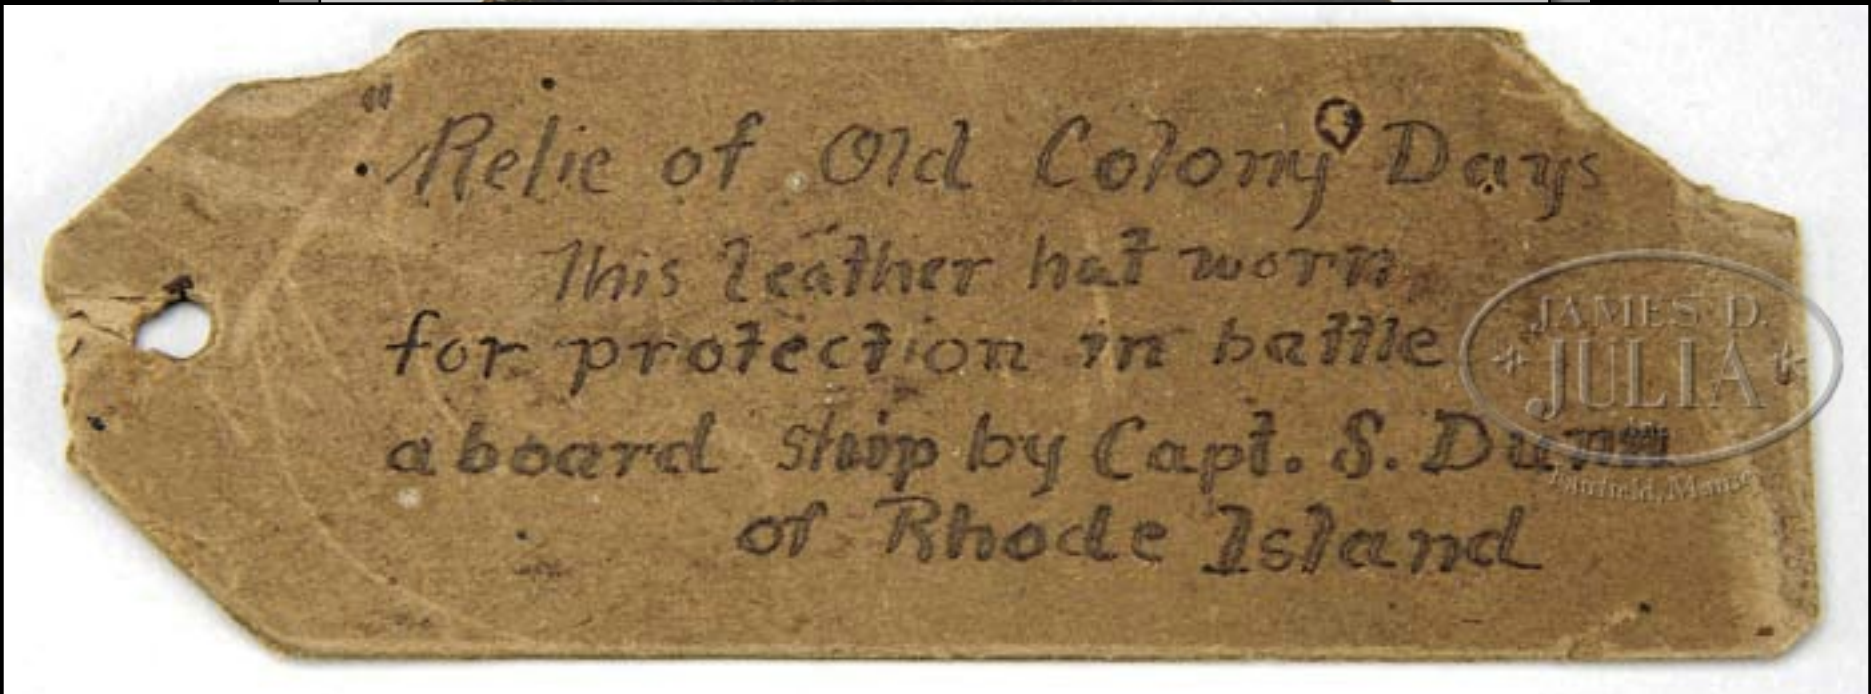 Relic of Old Colony Days
This leather hat worn
for protection in battle
aboard ship by Capt. S. Dunn
of Rhode Island
JAMES D.
JULIA
Fairfield, Maine